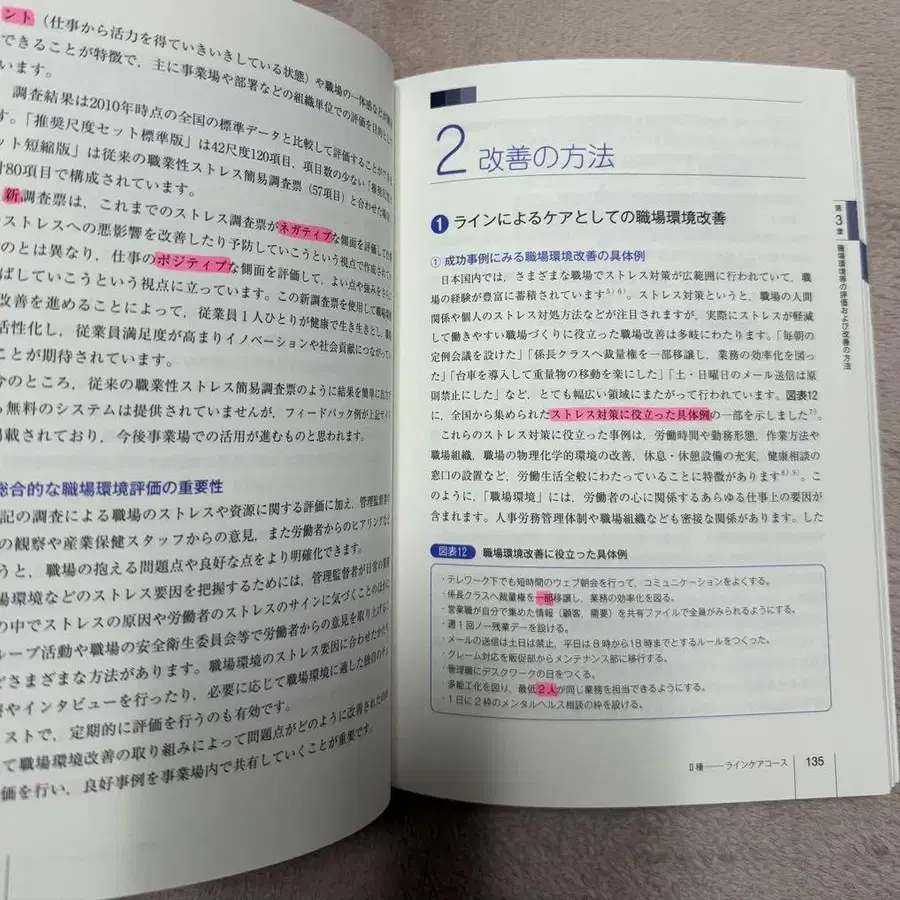 ント（仕事から活力を得ていきいきしている状態）や職場の一体感など
できることが特徴で，主に事業場や部署などの組織単位での評価を目的と
います。
調査結果は2010年時点の全国の標準データと比較して評価することが
す。「推奨尺度セット標準版」は42尺度120項目，項目数の少ない「推奨尺度
ット短縮版」は従来の職業性ストレス簡易調査票（57項目）と合わせた場合
計80項目で構成されています。
新調査票は，これまでのストレス調査票がネガティブな側面を評価して
のストレスへの悪影響を改善したり予防していこうという視点で作成されて
のとは異なり，仕事のポジティブな側面を評価して，よい点や強みを
ばしていこうという視点に立っています。この新調査票を使用して職場環境
改善を進めることによって，従業員１人ひとりが健康で生き生きとし，職場
活性化し，従業員満足度が高まりイノベーションや社会貢献につながって
ことが期待されています。
今のところ，従来の職業性ストレス簡易調査票のように結果を簡単に
る無料のシステムは提供されていませんが，フィードバック例が上記サイ
掲載されており，今後事業場での活用が進むものと思われます。
総合的な職場環境評価の重要性
記の調査による職場のストレスや資源に関する評価に加え，管理監督者
の観察や産業保健スタッフからの意見，また労働者からのヒアリングなど
うと，職場の抱える問題点や良好な点をより明確化できます。
場環境などのストレス要因を把握するためには，管理監督者が日常の
の中でストレスの原因や労働者のストレスのサインに気づくことのほかに
ループ活動や職場の安全衛生委員会等で労働者からの意見を取り上げる
どさまざまな方法があります。職場環境のストレス要因に合わせた
やインタビューを行ったり，必要に応じて職場環境に適した独自のチェ
ストで，定期的に評価を行うのも有効です。
て職場環境改善の取り組みによって問題点がどのように改善されたの
価を行い，良好事例を事業場内で共有していくことが重要です。
2 改善の方法
❶ ラインによるケアとしての職場環境改善
① 成功事例にみる職場環境改善の具体例
日本国内では，さまざまな職場でストレス対策が広範囲に行われていて，職
場の経験が豊富に蓄積されています⁵⁾⁶⁾。ストレス対策というと，職場の人間
関係や個人のストレス対処方法などが注目されますが，実際にストレスが軽減
して働きやすい職場づくりに役立った職場改善は多岐にわたります。「毎朝の
定例会議を設けた」「係長クラスへ裁量権を一部移譲し，業務の効率化を図っ
た」「台車を導入して重量物の移動を楽にした」「土・日曜日のメール送信は原
則禁止にした」など，とても幅広い領域にまたがって行われています。図表12
に，全国から集められたストレス対策に役立った具体例の一部を示しました⁷⁾。
これらのストレス対策に役立った事例は，労働時間や勤務形態，作業方法や
職場組織，職場の物理化学的環境の改善，休息・休憩設備の充実，健康相談の
窓口の設置など，労働生活全般にわたっていることに特徴があります⁸⁾⁹⁾。こ
のように，「職場環境」には，労働者の心に関係するあらゆる仕事上の要因が
含まれます。人事労務管理体制や職場組織なども密接な関係があります。した
図表12 職場環境改善に役立った具体例
・テレワーク下でも短時間のウェブ朝会を行って，コミュニケーションをよくする。
・係長クラスへ裁量権を一部移譲し，業務の効率化を図る。
・営業職が自分で集めた情報（顧客，需要）を共有ファイルで全員がみられるようにする。
・週１回ノー残業デーを設ける。
・メールの送信は土日は禁止，平日は８時から18時までとするルールをつくった。
・クレーム対応を販促部からメンテナンス部に移行する。
・管理職にデスクワークの日をつくる。
・多能工化を図り，最低２人が同じ業務を担当できるようにする。
・１日に２枠のメンタルヘルス相談の枠を設ける。
第3章 職場環境等の評価および改善の方法
Ⅱ種――ラインケアコース 135